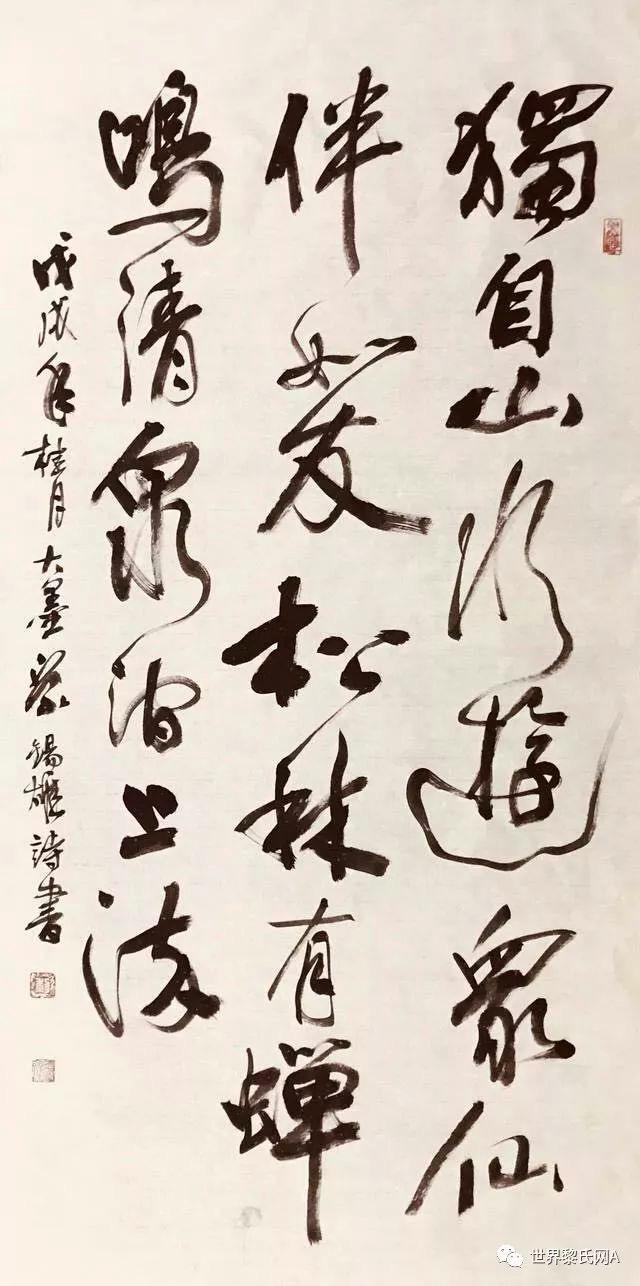 獨自山行遊眾仙
伴如友松林有蟬
鳴清泉上流
戊戌年桂月大墨黎錫雄詩書
世界黎氏网A